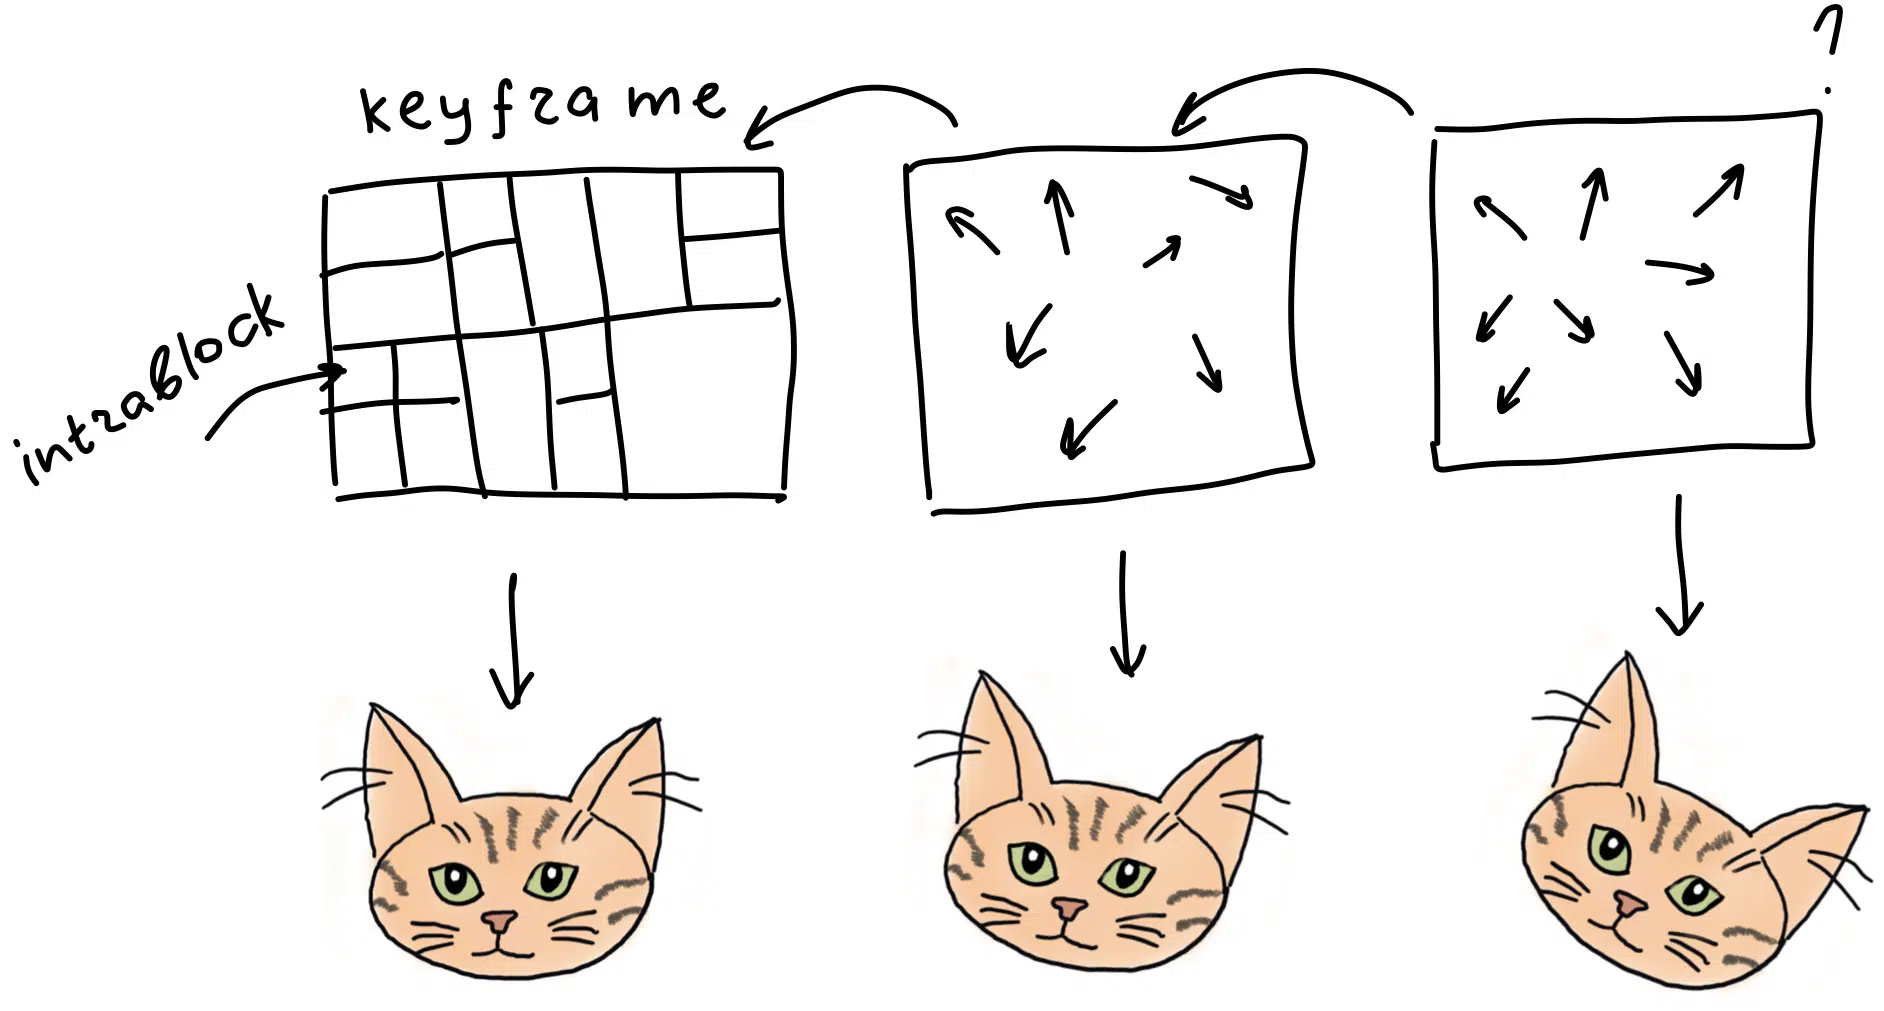 ?
keyframe
intrablock